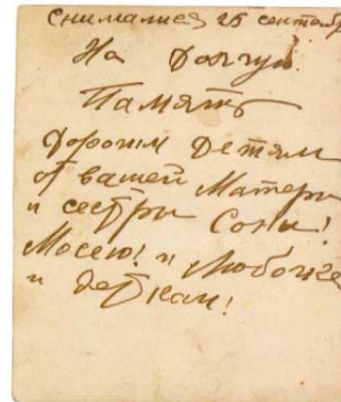 снимались 25 сентябр
На долгую
Память
Дорогим Детям
от вашей Матери
и сестры Сони!
Мосею! и Любочке
и деткам!